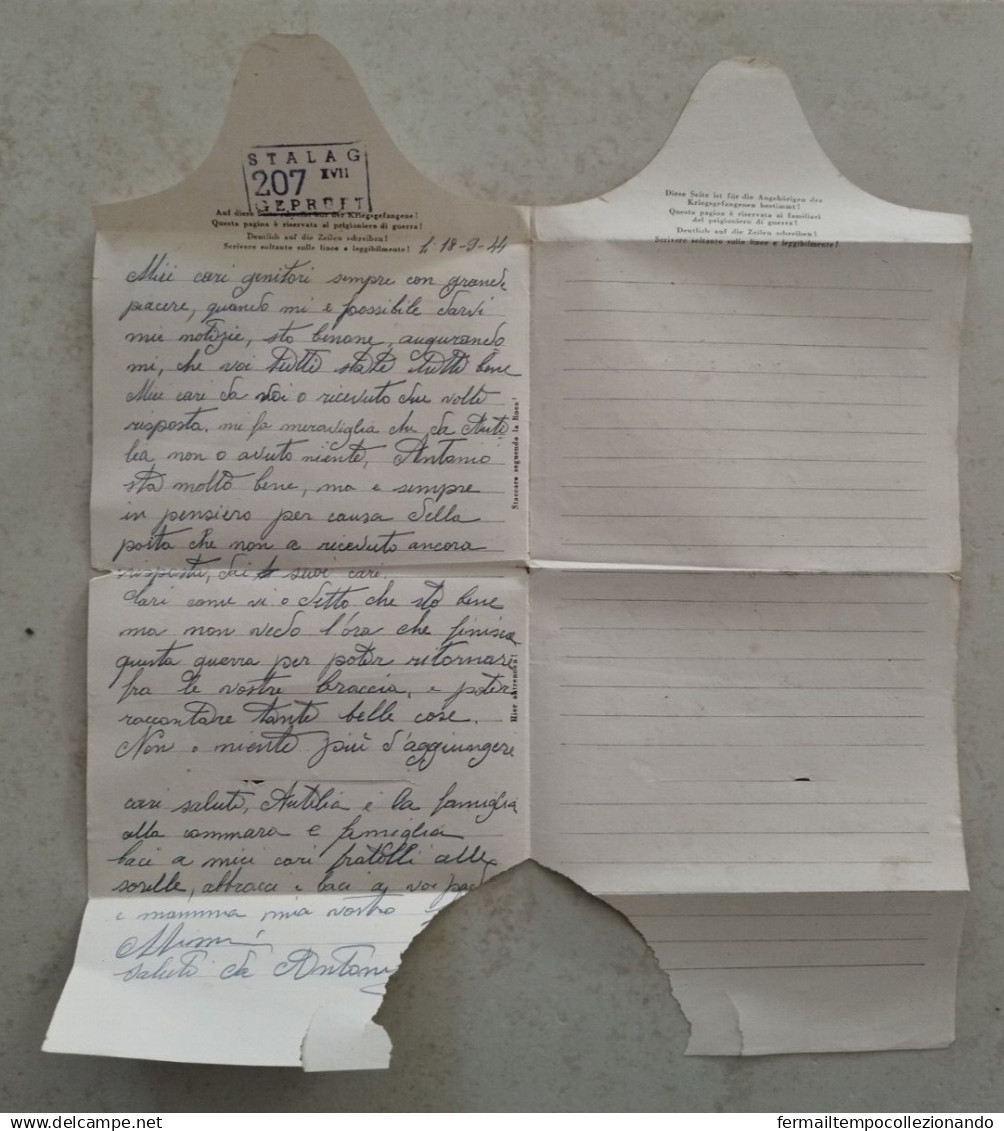 STALAG
207 XVII
GEPRÜFT
Auf diese Seite schreibt nur der Kriegsgefangene!
Questa pagina è riservata al prigioniero di guerra!
Deutlich auf die Zeilen schreiben!
Scrivere soltanto sulle linee e leggibilmente!
li 18-9-44
Miei cari genitori sempre con grande
piacere, quando mi e possibile darvi
mie notizie, sto benone, augurando
mi, che voi tutti state tutti bene
Miei cari da voi o ricevuto due volte
risposta. mi fa meraviglia che da Auti
lia non o avuto niente, Antonio
sta molto bene, ma e sempre
in pensiero per causa della
posta che non a ricevuto ancora
risposta, dai suoi cari.
Cari come vi o detto che sto bene
ma non vedo l'ora che finisca
questa guerra per poter ritornare
fra le vostre braccia, e poter
raccontare tante belle cose.
Non o niente più d'aggiungere
cari saluti, Autilia e la famiglia
alla commara e famiglia
baci a miei cari fratelli alle
sorelle, abbracci e baci a voi
e mamma mia vostro
Mimì
saluti da Antonio
Staccare seguendo la linea!
Hier abtrennen!
Diese Seite ist für die Angehörigen des
Kriegsgefangenen bestimmt!
Questa pagina è riservata ai familiari
del prigioniero di guerra!
Deutlich auf die Zeilen schreiben!
Scrivere soltanto sulle linee e leggibilmente!
fermailtempocollezionando